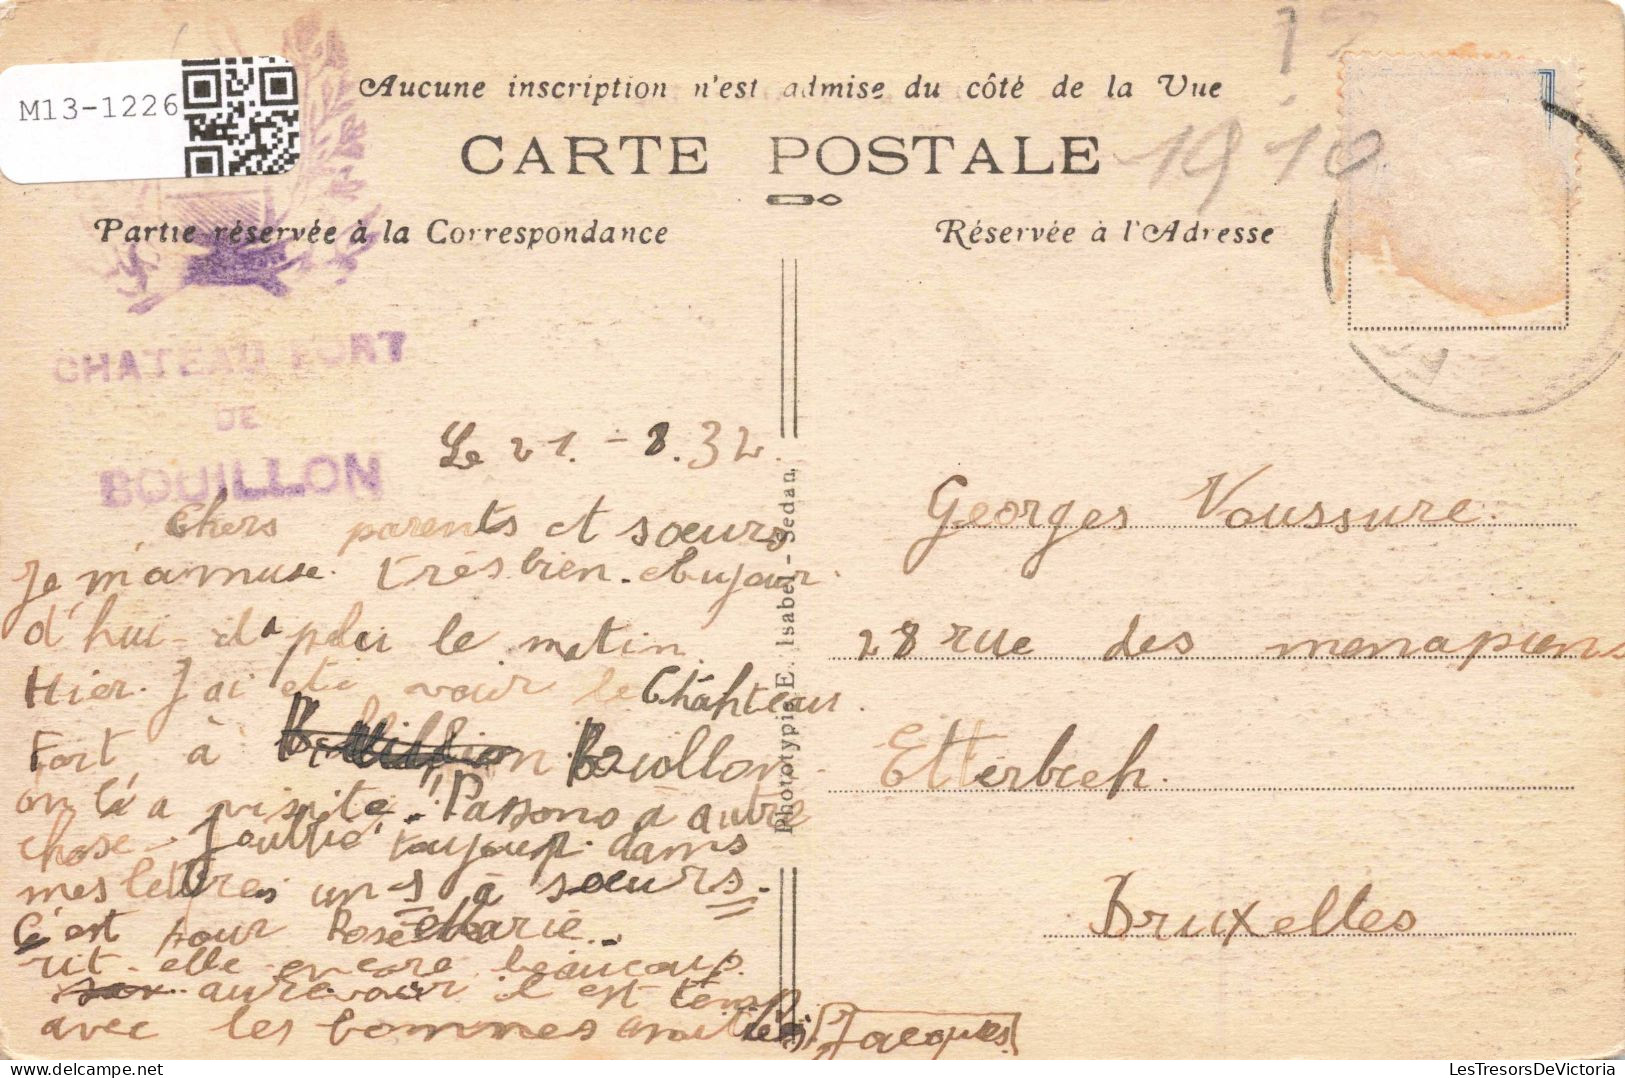 M13-1226
Aucune inscription n'est admise du côté de la Vue
CARTE POSTALE
1910
Partie réservée à la Correspondance
Réservée à l'Adresse
CHATEAU FORT
DE
BOUILLON
Le 21.-8.32.
Chers parents et sœurs
Je m'ammuse. très bien. aujour
d'hui il a plu le matin
Hier. J'ai été voir le Châhteau
Fort à Bouollon
on l'a visité. Passons à autre
chose. J'oublie toujour. dams
mes lettres un s à sœurs.
C'est pour Rose Marie
rit-elle encore beaucoup.
au revoir il est temp
avec les bommes
Jacques
Phototypie E. Isabel - Sedan
Georges Voussure.
28 rue des menapiens
Etterbeeh.
Bruxelles
LesTresorsDeVictoria